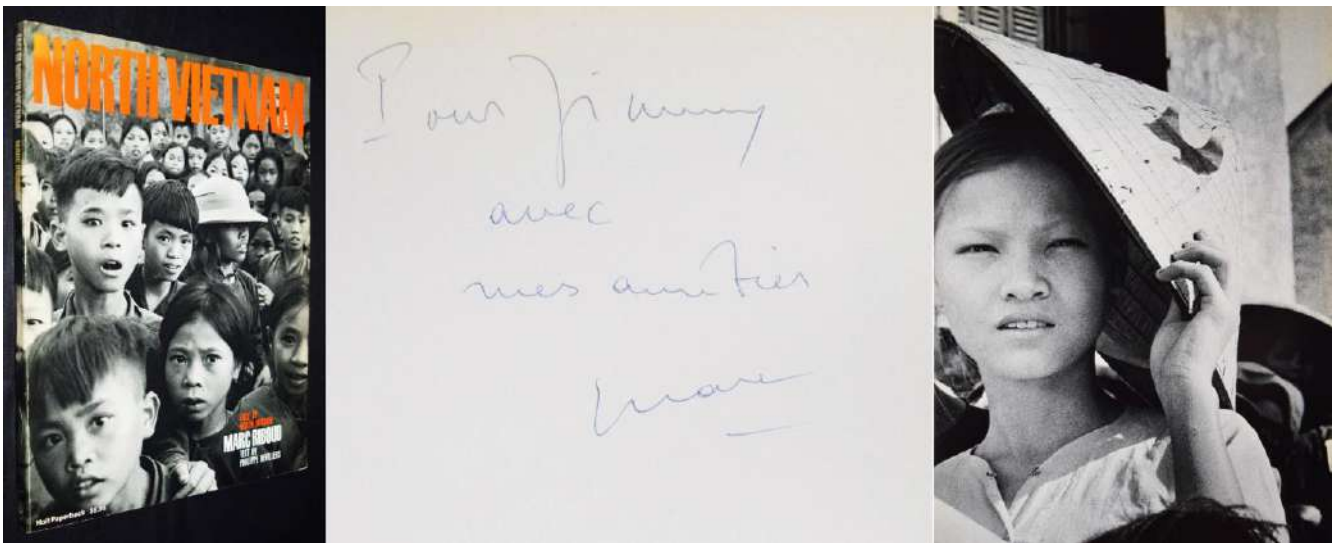 NORTH VIETNAM
FACE OF
NORTH VIETNAM
MARC RIBOUD
TEXT BY
PHILIPPE DEVILLERS
Holt Paperback
Pour Jimmy
avec
mes amitiés
Marc